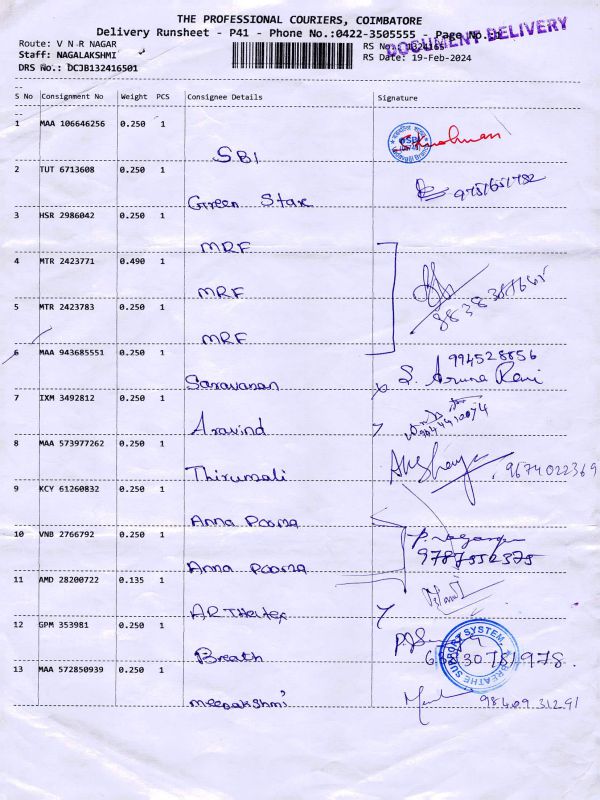 THE PROFESSIONAL COURIERS, COIMBATORE
Delivery Runsheet - P41 - Phone No.:0422-3505555 - Page No.:
DOCUMENT DELIVERY
Route: V N R NAGAR
RS No.: 1324165
Staff: NAGALAKSHMI
RS Date: 19-Feb-2024
DRS No.: DCJB132416501
S No Consignment No Weight PCS Consignee Details Signature
1 MAA 106646256 0.250 1
SBI
2 TUT 6713608 0.250 1
9751651782
Green Star
3 HSR 2986042 0.250 1
MRF
4 MTR 2423771 0.490 1
MRF
5 MTR 2423783 0.250 1
MRF
6 MAA 943685551 0.250 1
994528856
Saravanan S. Aruna Rani
7 IXM 3492812 0.250 1
Aravind
8 MAA 573977262 0.250 1
Thirumali Akshaya 9674022369
9 KCY 61260832 0.250 1
Anna Poorna
10 VNB 2766792 0.250 1
9787552375
Anna Poorna
11 AMD 28200722 0.135 1
AR Theitex
12 GPM 353981 0.250 1
BREATHE SUPPORT SYSTEM
Breath
13 MAA 572850939 0.250 1
meenakshmi 98409 31291